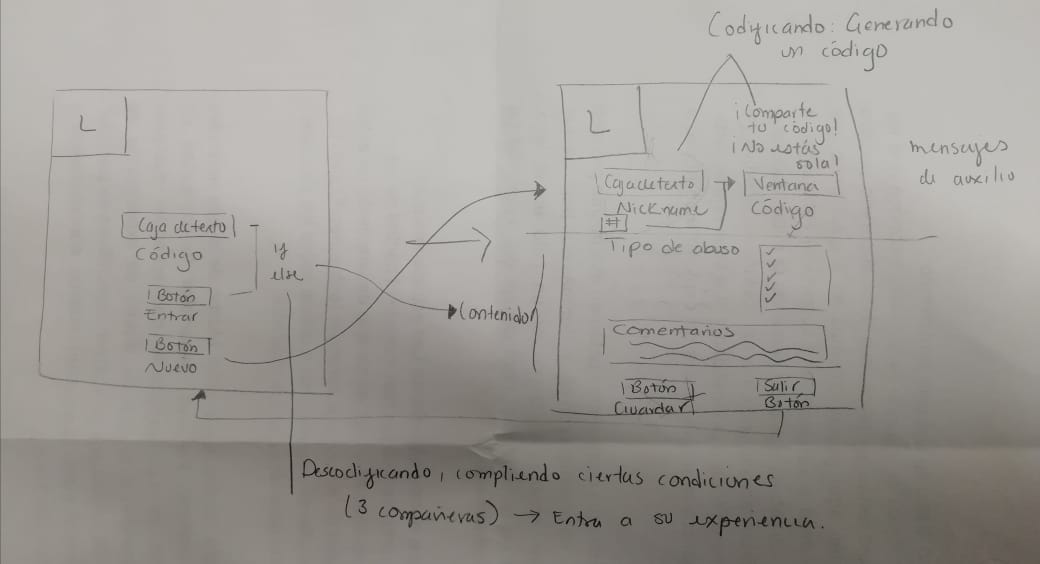 Codificando: Generando
un código
L
Caja de texto
Código
Botón
Entrar
Botón
Nuevo
y
else
Contenido
L
¡Comparte
tu código!
¡No estás
sola!
Caja de texto
Nickname
#
Ventana
Código
Tipo de abuso
Comentarios
Botón
Guardar
Salir
Botón
mensajes
de auxilio
Descodificando, compliendo ciertas condiciones
(3 compañeras) → Entra a su experiencia.